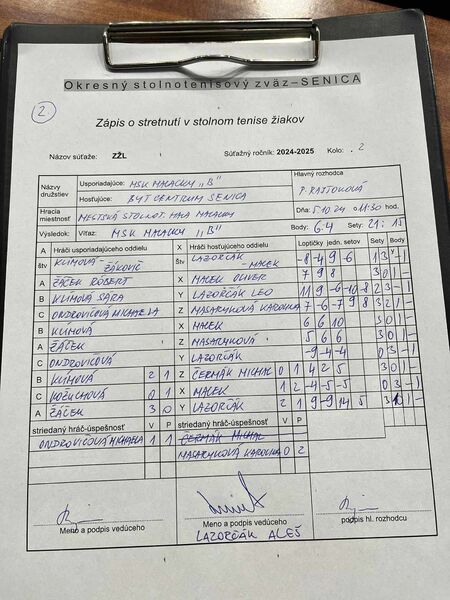 Okresný stolnotenisový zväz–SENICA
2.
Zápis o stretnutí v stolnom tenise žiakov
Názov súťaže: ZŽL Súťažný ročník: 2024-2025 Kolo: . 2
Názvy družstiev Usporiadajúce: MSK MALACKY „B" Hlavný rozhodca
Hosťujúce: BYTCENTRUM SENICA P. RAJTOKOVÁ
Hracia miestnosť MESTSKÁ STOLNOT. HALA MALACKY Dňa: 5.10.24 o 11:30 hod.
Výsledok: Víťaz: MSK MALACKY „B" Body: 6:4 Sety: 21:15
A Hráči usporiadajúceho oddielu X Hráči hosťujúceho oddielu Loptičky jedn. setov Sety Body
štv KLIMOVÁ - ŽÁKOVIČ štv LAZORČÁK - MACEK -8 -4 9 -6 1 3 - 1
A ŽÁČEK RÓBERT X MACEK OLIVER 7 9 8 3 0 1 -
B KLIMOVÁ SÁRA Y LAZORČÁK LEO 11 9 -6 -10 -8 2 3 - 1
C ONDROVIČOVÁ MICHAELA Z MASARYKOVÁ KAROLÍNA 7 -6 -7 9 8 3 2 1 -
B KLIMOVÁ X MACEK 6 6 10 3 0 1 -
A ŽÁČEK Z MASARYKOVÁ 5 6 6 3 0 1 -
C ONDROVIČOVÁ Y LAZORČÁK -9 -4 -4 0 3 - 1
B KLIMOVÁ 2 1 Z ČERMÁK MICHAL 0 1 4 2 5 3 0 1 -
C KOŽUCHOVÁ 0 1 X MACEK 1 2 -4 -5 -5 0 3 - 1
A ŽÁČEK 3 0 Y LAZORČÁK 2 1 9 -9 14 5 3 1 1 -
striedaný hráč-úspešnosť V P striedaný hráč-úspešnosť V P
ONDROVIČOVÁ MICHAELA 1 1 ČERMÁK MICHAL
MASARYKOVÁ KAROLÍNA 0 2
Meno a podpis vedúceho Meno a podpis vedúceho podpis hl. rozhodcu
LAZORČÁK ALEŠ